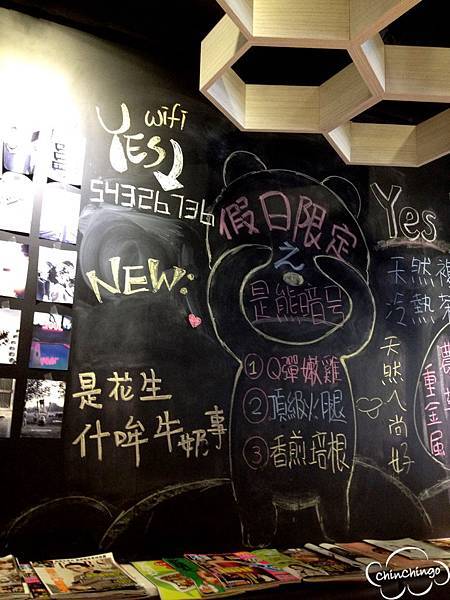 wifi
YES
54326736
NEW:
是花生
什哞牛奶事
假日限定
之
是熊暗号
① Q彈嫩雞
② 頂級火腿
③ 香煎培根
Yes
天然複
冷熱茶
天然ㄟ尚好
農
重金屬
chinchingo